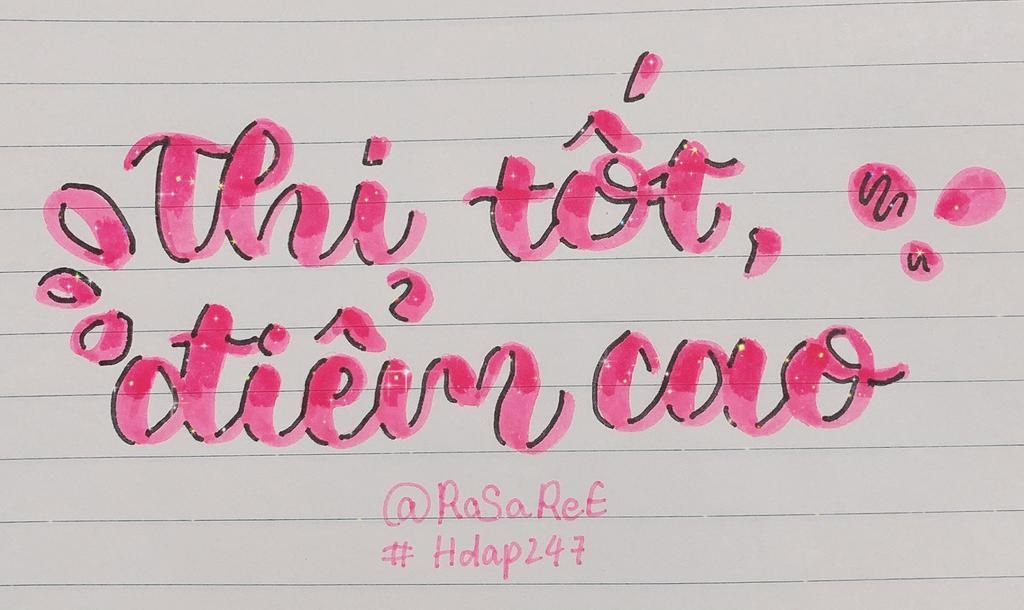 Thi tốt,
điểm cao
@RaSaReE
# Hdap247